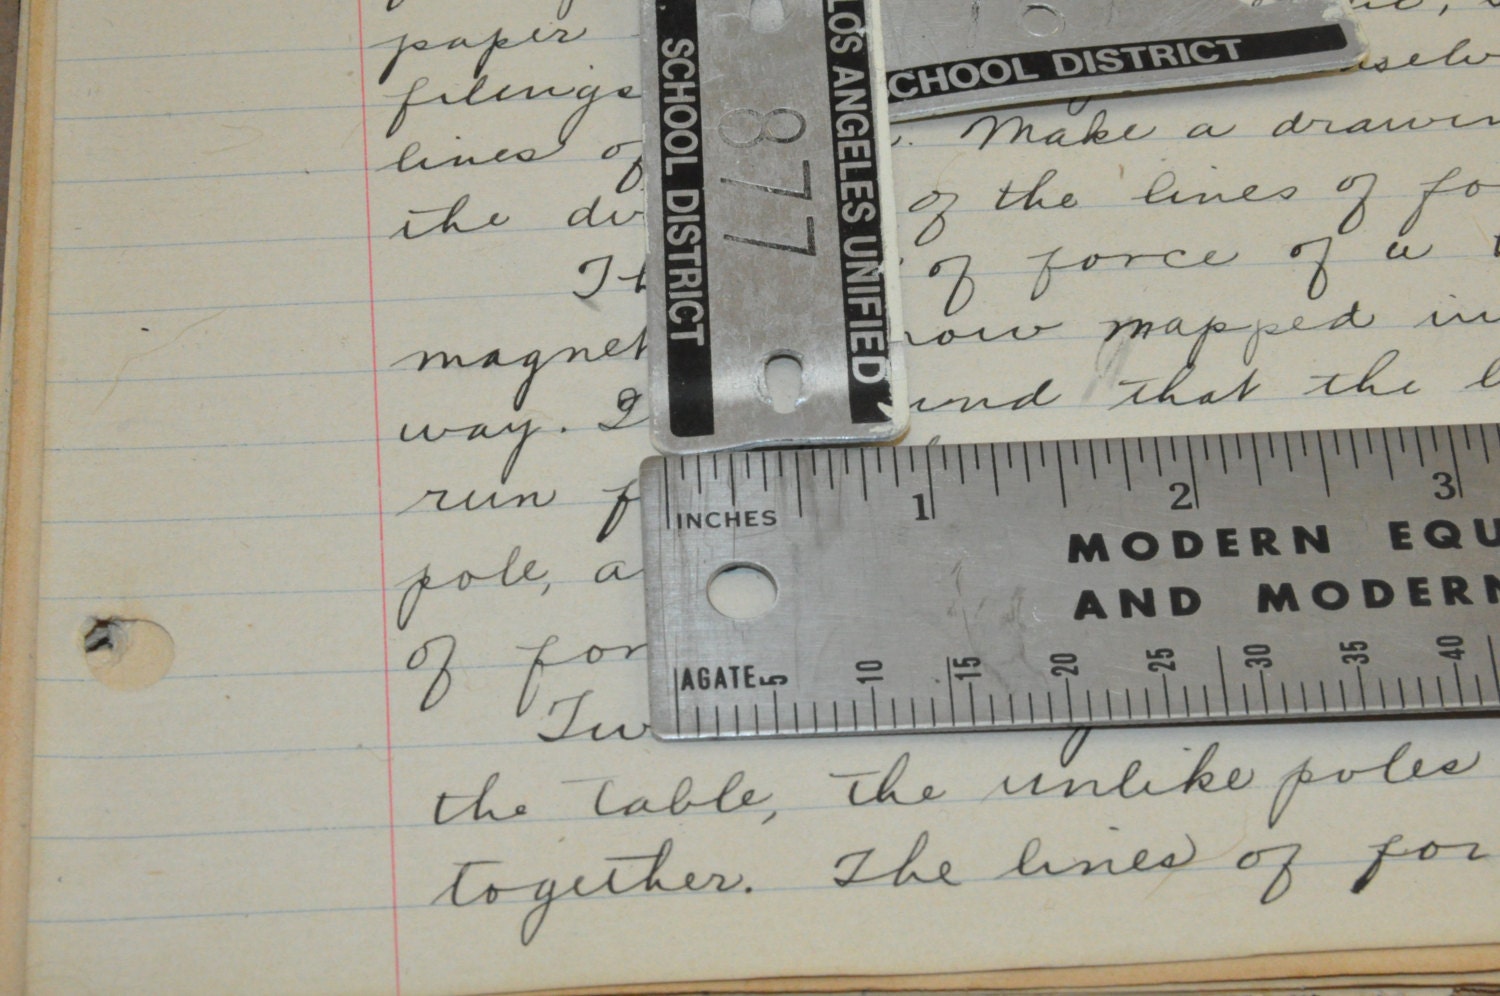 paper
filings
lines of . Make a drawin
the di of the lines of fo
Th of force of a
magnet now mapped in
way. that the
run
pole, a
of for
Tw
the table, the unlike poles
together. The lines of for
SCHOOL DISTRICT
877
LOS ANGELES UNIFIED
CHOOL DISTRICT
1 2 3
INCHES
MODERN EQU
AND MODERN
AGATE 5 10 15 20 25 30 35 40